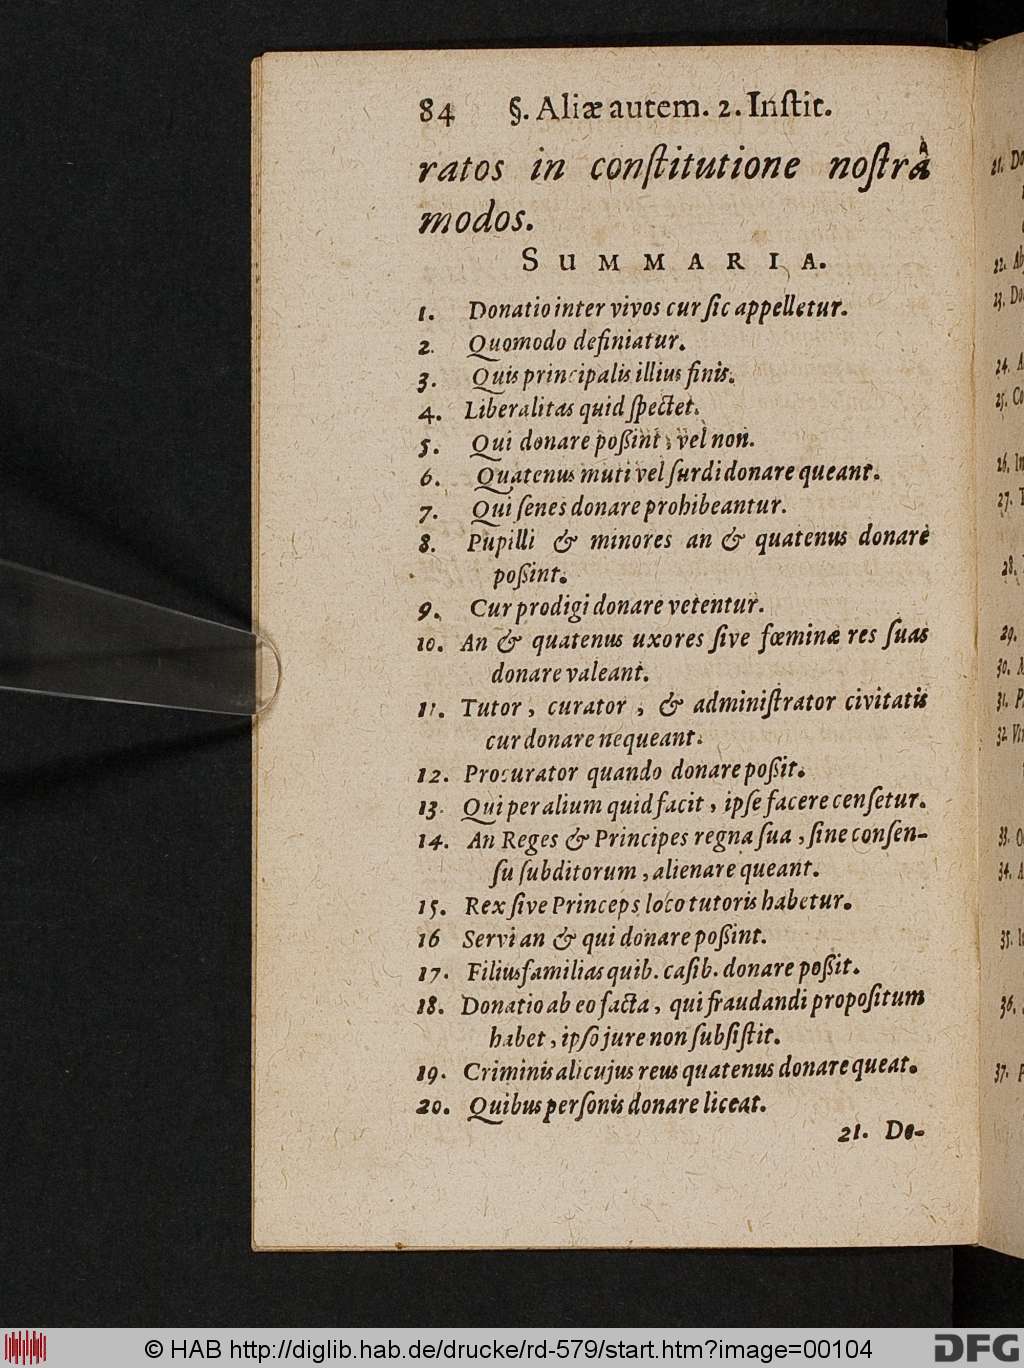 84 §. Aliæ autem. 2. Inſtit.
ratos in conſtitutione noſtrà
modos.
SUMMARIA.
1. Donatio inter vivos cur ſic appelletur.
2. Quomodo definiatur.
3. Quis principalis illius finis.
4. Liberalitas quid ſpectet.
5. Qui donare poßint, vel non.
6. Quatenus muti vel ſurdi donare queant.
7. Qui ſenes donare prohibeantur.
8. Pupilli & minores an & quatenus donare
poßint.
9. Cur prodigi donare vetentur.
10. An & quatenus uxores ſive fœminæ res ſuas
donare valeant.
11. Tutor, curator, & adminiſtrator civitatis
cur donare nequeant.
12. Procurator quando donare poßit.
13. Qui per alium quid facit, ipſe facere cenſetur.
14. An Reges & Principes regna ſua, ſine conſen-
ſu ſubditorum, alienare queant.
15. Rex ſive Princeps loco tutoris habetur.
16 Servi an & qui donare poßint.
17. Filiusfamilias quib. caſib. donare poßit.
18. Donatio ab eo facta, qui fraudandi propoſitum
habet, ipſo jure non ſubſiſtit.
19. Criminis alicujus reus quatenus donare queat.
20. Quibus perſonis donare liceat.
21. Do-
21. Do
22. Ab
23. Do
24. A
25. Co
26. In
27.
28.
29.
30.
31. P
32. Vi
33. O
34. A
35. I
36.
37. P
© HAB http://diglib.hab.de/drucke/rd-579/start.htm?image=00104
DFG